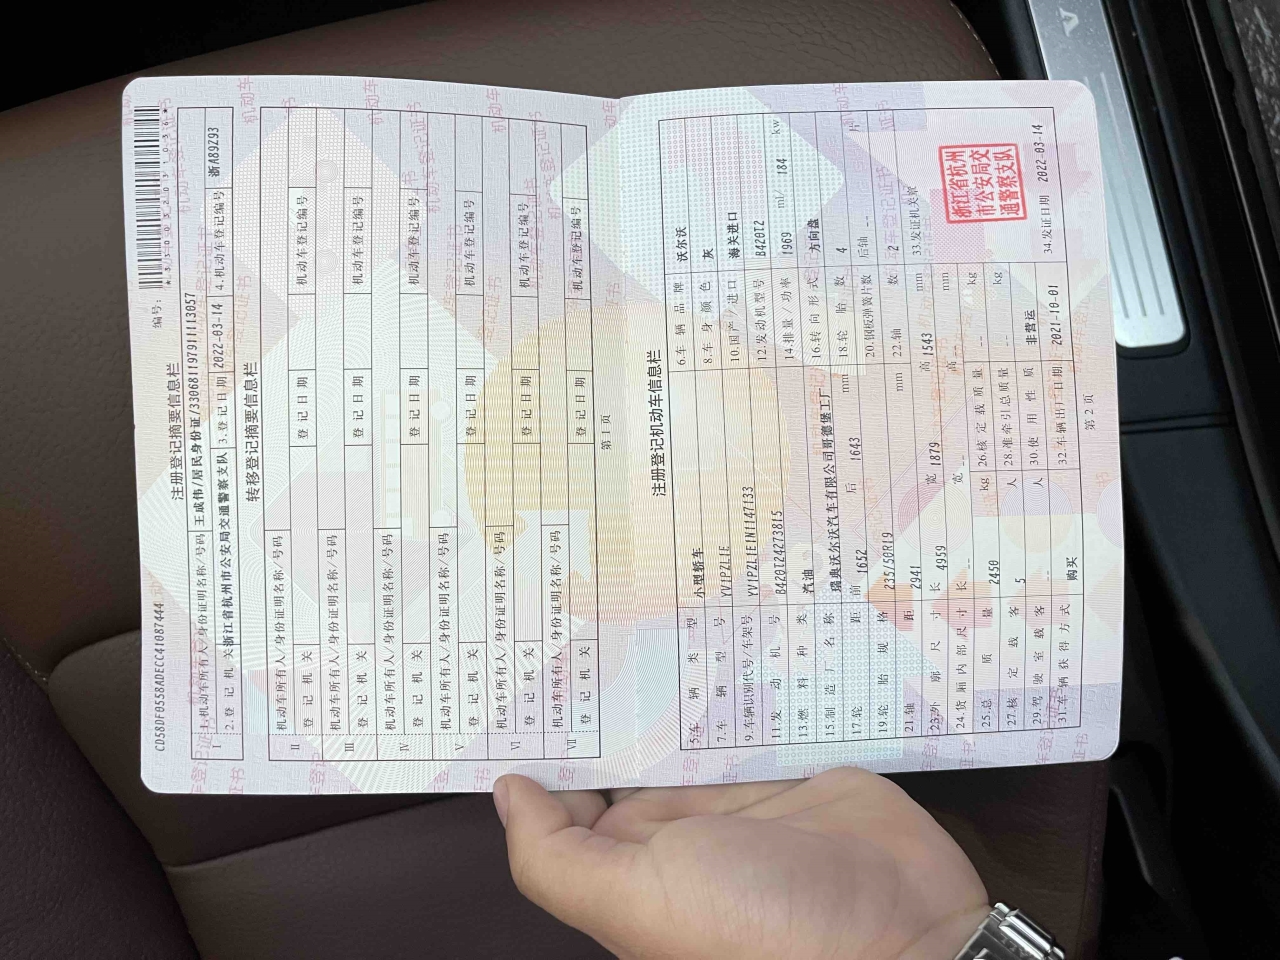 CD58DF0558ADECC41087444
编号:
注册登记摘要信息栏
Ⅰ 1.机动车所有人/身份证明名称/号码 王成伟/居民身份证/330681197911113057
2.登记机关 浙江省杭州市公安局交通警察支队 3.登记日期 2022-03-14 4.机动车登记编号 浙A89Z93
转移登记摘要信息栏
Ⅱ 机动车所有人/身份证明名称/号码
登记机关 登记日期 机动车登记编号
Ⅲ 机动车所有人/身份证明名称/号码
登记机关 登记日期 机动车登记编号
Ⅳ 机动车所有人/身份证明名称/号码
登记机关 登记日期 机动车登记编号
Ⅴ 机动车所有人/身份证明名称/号码
登记机关 登记日期 机动车登记编号
Ⅵ 机动车所有人/身份证明名称/号码
登记机关 登记日期 机动车登记编号
Ⅶ 机动车所有人/身份证明名称/号码
登记机关 登记日期 机动车登记编号
第 1 页
注册登记机动车信息栏
5.车辆类型 小型轿车 6.车辆品牌 沃尔沃
7.车辆型号 YV1PZL1E 8.车身颜色 灰
9.车辆识别代号/车架号 YV1PZL1E1N1147133 10.国产/进口 海关进口
11.发动机号 B420T24273815 12.发动机型号 B420T2
13.燃料种类 汽油 14.排量/功率 1969 ml/ 184 kw
15.制造厂名称 瑞典沃尔沃汽车有限公司哥德堡工厂 16.转向形式 方向盘
17.轮距 前 1652 后 1643 mm 18.轮胎数 4
19.轮胎规格 235/50R19 20.钢板弹簧片数 后轴 -- 片
21.轴距 2941 mm 22.轴数 2
23.外廓尺寸 长 4959 宽 1879 高 1543 mm 33.发证机关章
浙江省杭州
市公安局交
通警察支队
24.货厢内部尺寸 长 -- 宽 -- 高 -- mm
25.总质量 2450 kg 26.核定载质量 -- kg
27.核定载客 5 人 28.准牵引总质量 -- kg
29.驾驶室载客 -- 人 30.使用性质 非营运
31.车辆获得方式 购买 32.车辆出厂日期 2021-10-01 34.发证日期 2022-03-14
第 2 页